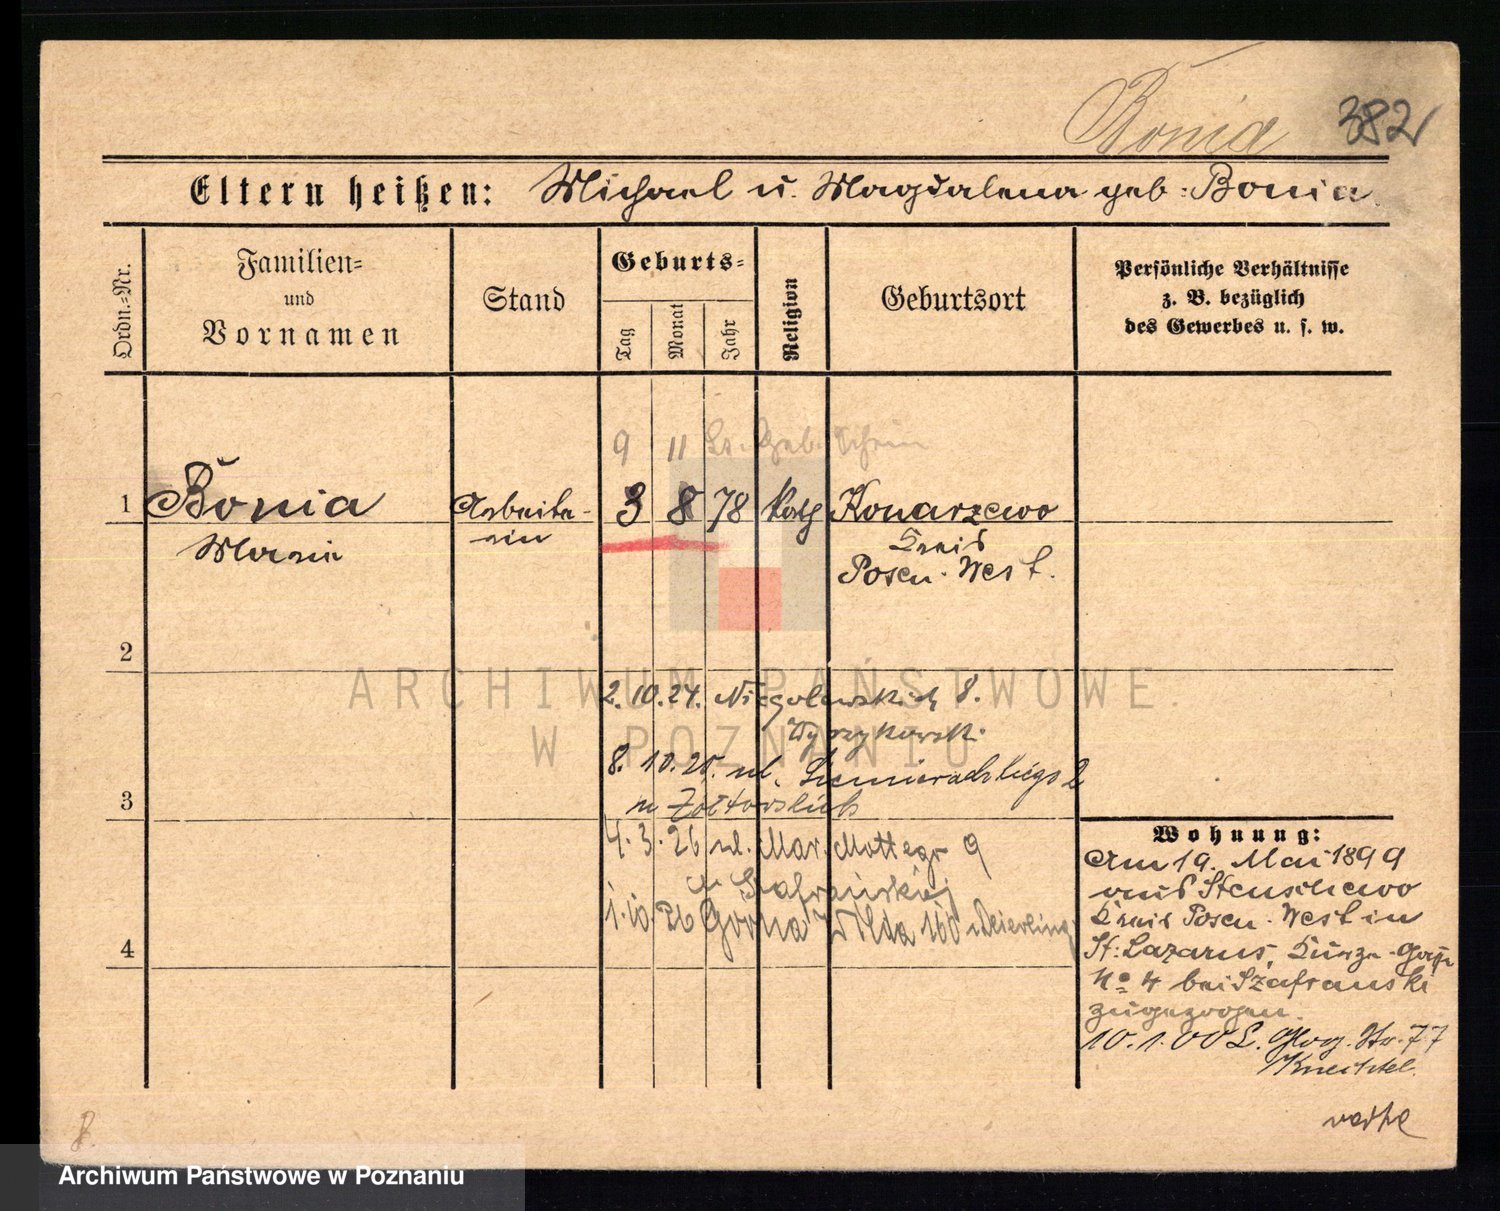 Bonia 382
Eltern heißen: Michael u. Magdalena geb: Bonia.
Ordn.=Nr.
Familien=
und
Vornamen
Stand
Geburts=
Tag
Monat
Jahr
Religion
Geburtsort
Persönliche Verhältnisse
z. B. bezüglich
des Gewerbes u. s. w.
9 11 Geb. Schein
1 Bonia Arbeite- 3 8 78 Kath Konarzewo
Maria rin Kreis
Posen-West.
2
ARCHIWUM PAŃSTWOWE
W POZNANIU
2.10.24. Niegolewskich 8.
Wyrzykowski
8.10.25. ul. 2
3
4.3.26 ul. Mar. Mottego 9
u Szafrańskiej
1.10.26 Górna Wilda 160
4
Wohnung:
Am 19. Mai 1899
aus Stenschewo
Kreis Posen-West in
St: Lazarus, Kurze-Gasse
No 4 bei Szafranski
zugezogen.
10.1.00 L. Glog. Str. 77
Knechtel.
Archiwum Państwowe w Poznaniu